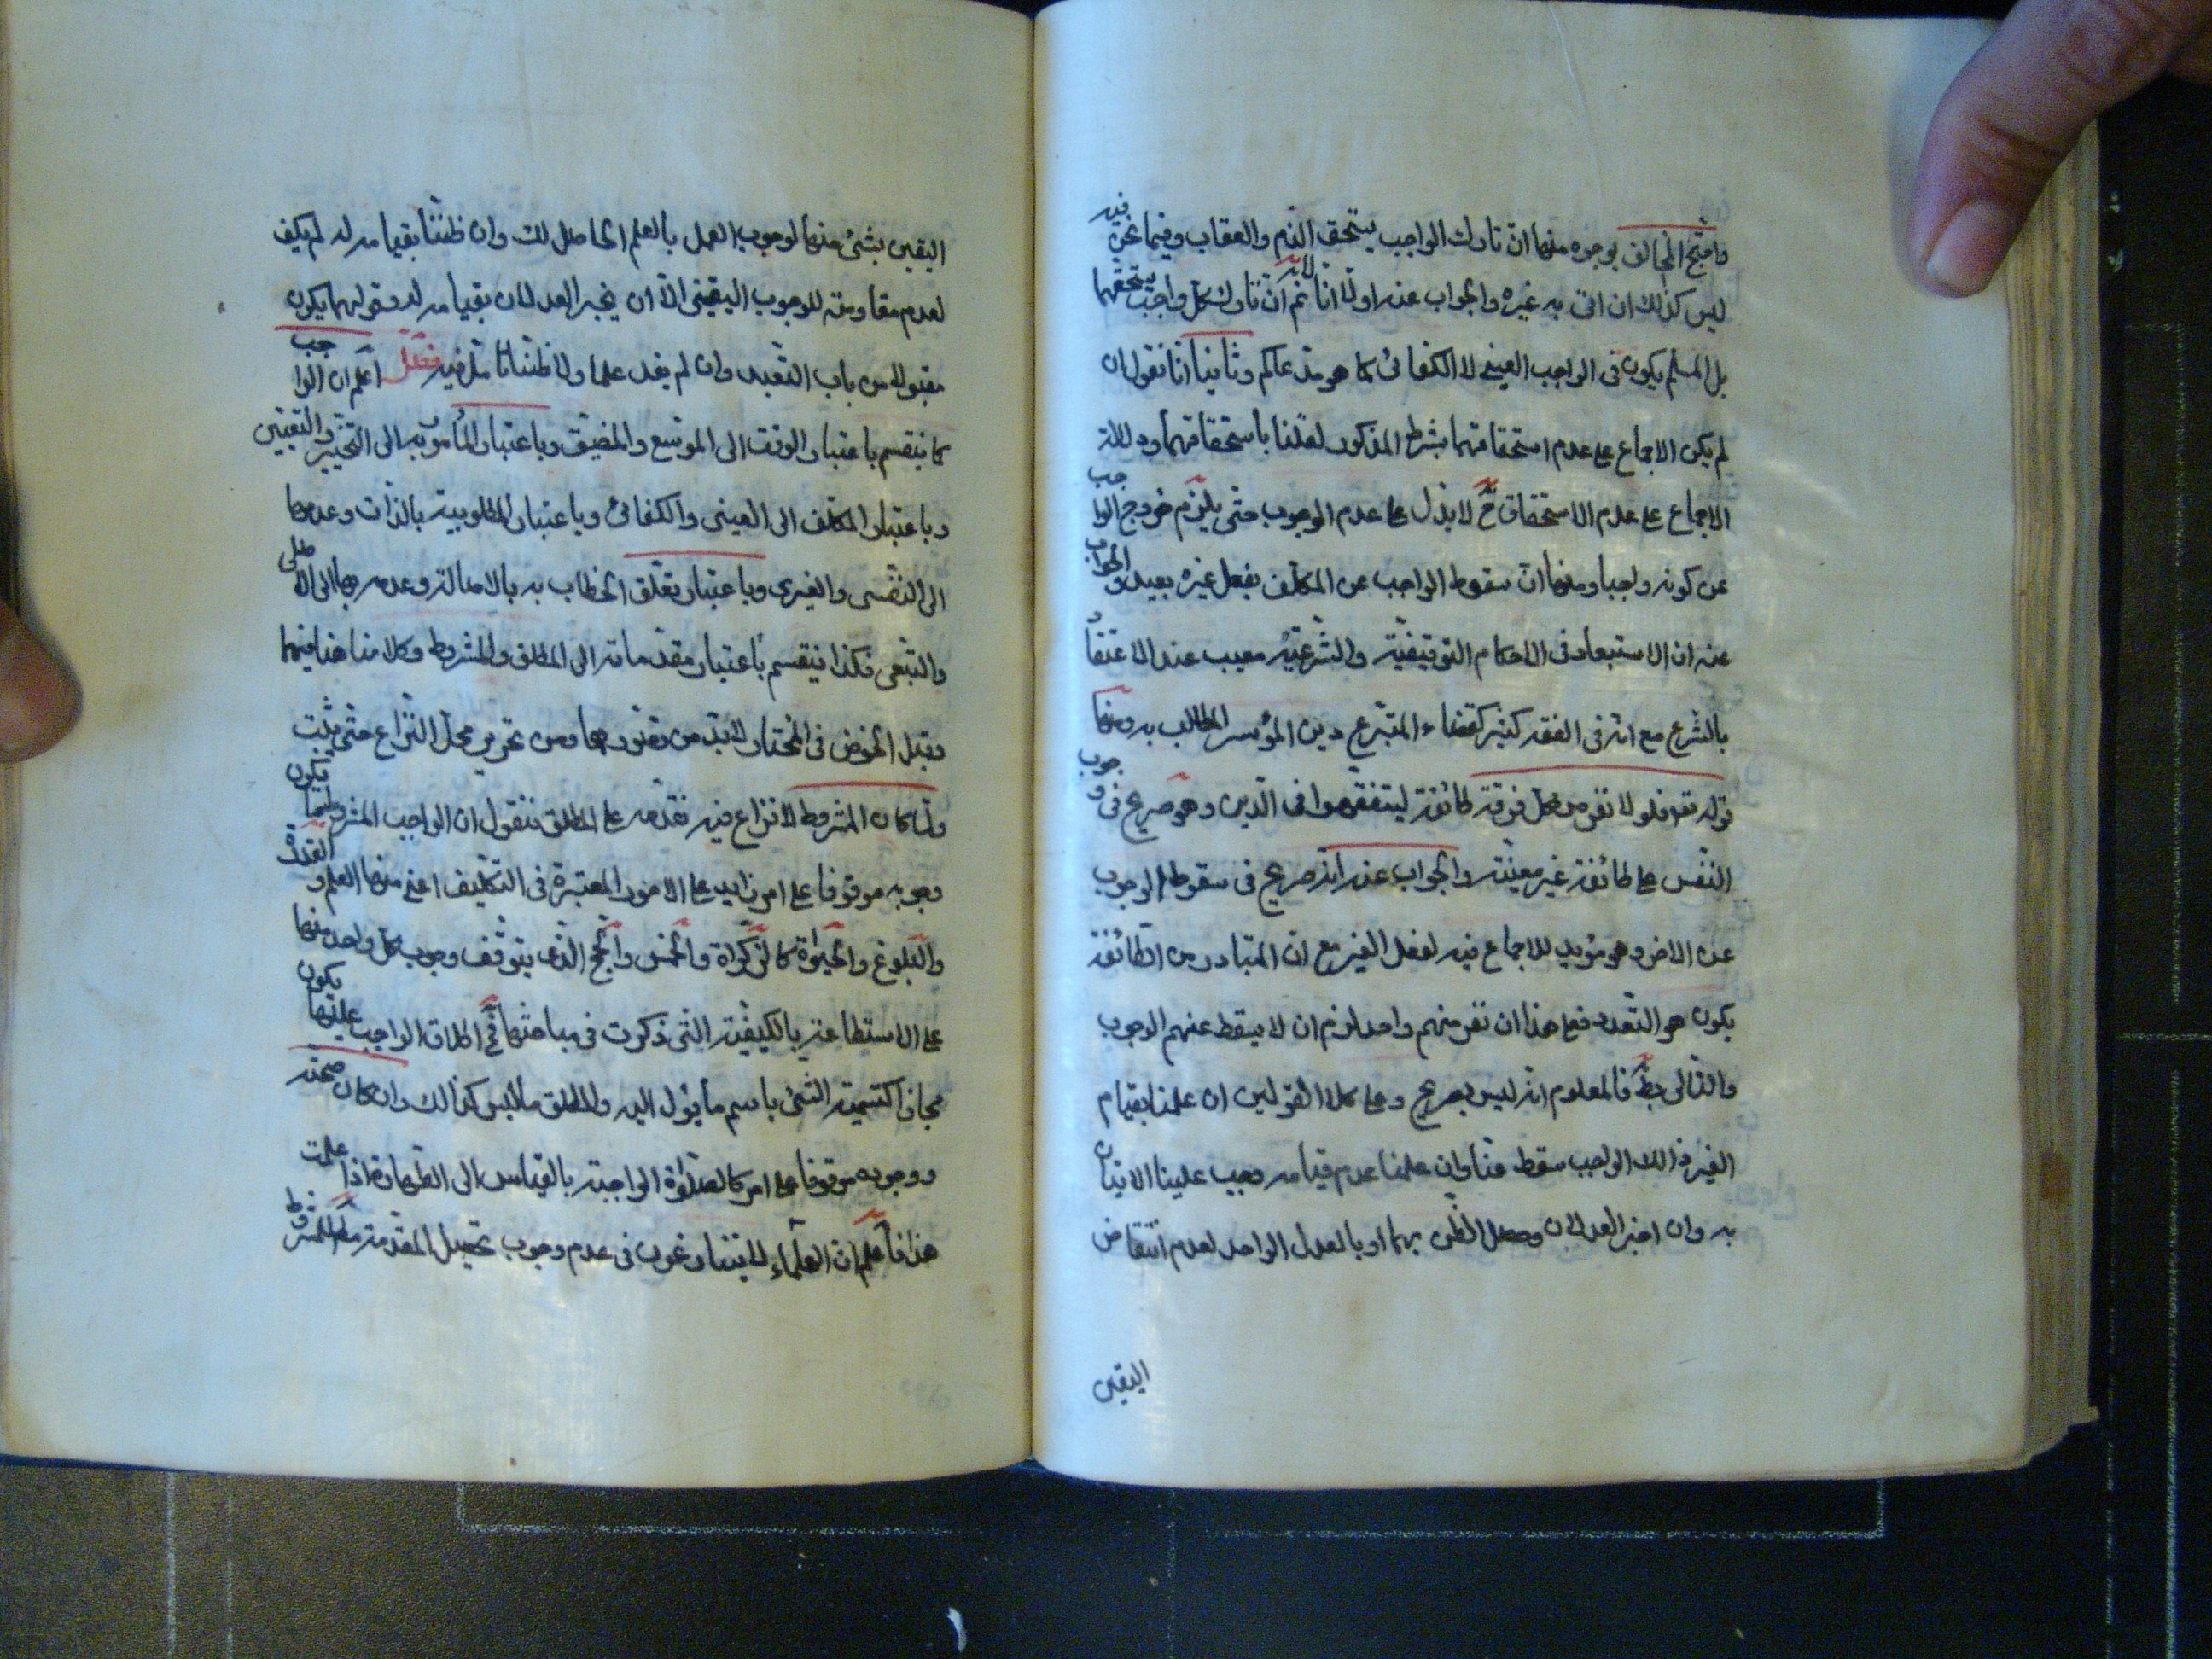 واحتج المخالف بوجوه منها ان تارك الواجب يستحق الذم والعقاب وفيما نحن فيه
ليس كذلك ان اتى به غيره والجواب عنه اولا انا لانم ان تارك كل واجب يستحقهما
بل المسلم يكون فى الواجب العينى لا الكفائى كما هو مدعاكم وثانيا انا نقول ان
لم يكن الاجماع على عدم استحقاقهما بشرط المذكور لقلنا باستحقاقهما ودلالة
الاجماع على عدم الاستحقاق ح لا يدل على عدم الوجوب حتى يلزم خروج الواجب
عن كونه واجبا ومنها ان سقوط الواجب عن المكلف بفعل غيره بعيد والجواب
عنه ان الاستبعاد فى الاحكام التوقيفية والشرعية معيب عند الاعتقاد
بالشرع مع انه فى الفقه كثير كقضاء المتبرع دين المؤسر المطالب به ومنها
قوله تعـ فلولا نفر من كل فرقة طائفة ليتفقهوا فى الدين وهو صريح فى وجوب
النفس على طائفة غير معينة والجواب عنه انه صريح فى سقوط الوجوب
عن الاخر وهو مؤيد للاجماع فيه لفعل الغير مع ان المتبادر من الطائفة
يكون هو التعدد فعلى هذا ان نفر منهم واحد لزم ان لا يسقط عنهم الوجوب
والتالى بط فالمعلوم انه ليس بصريح وعلى كلا القولين ان علمنا بقيام
الغير ذالك الواجب سقط منا وان علمنا عدم قيامه وجب علينا الاتيان
به وان اخبر العدلان وحصل الظن بهما او بالعدل الواحد لعدم انتقاض
اليقين
اليقين بشئ منها لوجوب العمل بالعلم الحاصل لك وان ظننا بقيامه له لم يكف
لعدم مقاومته للوجوب اليقينى الا ان يخبر العدلان بقيامه له فقولهما يكون
مقبولا من باب التعبد وان لم يفد علما ولا ظنا تامل فيه فصل اعلم ان الواجب
كما ينقسم باعتبار الوقت الى الموسع والمضيق وباعتبار المأمور به الى التخيير والتعيين
وباعتبار المكلف الى العينى والكفائى وباعتبار المطلوبية بالذات وعدمها
الى النفسى والغيرى وباعتبار تعلق الخطاب به بالاصالة وعدمه بها الى الاصلى
والتبعى فكذا ينقسم باعتبار مقدماته الى المطلق والمشروط وكلامنا هنا فيهما
وقبل الخوض فى المختار لا بد من تصورهما ومن تحرير محل النزاع حتى يثبت
ولما كان المشروط لا نزاع فيه نقدمه على المطلق فنقول ان الواجب المشروط ما يكون
وجوبه موقوفا على امر زايد على الامور المعتبرة فى التكليف اعنى منها العلم والقدرة
والبلوغ والحيوة كالزكواة والخمس والحج الذى يتوقف وجوب كل واحد منها
على الاستطاعة بالكيفية التى ذكرت فى مباحثها فح اطلاق الواجب عليها يكون
مجازا كتسمية الشئ باسم ما يؤل اليه والمطلق ما ليس كذالك وان كان صحته
ووجوده موقوفا على امر كالصلوة الواجبة بالقياس الى الطهارة اذا علمت
هذا فأعلم ان العلماء لا يتنازعون فى عدم وجوب تحصيل المقدمة مط للمشروط